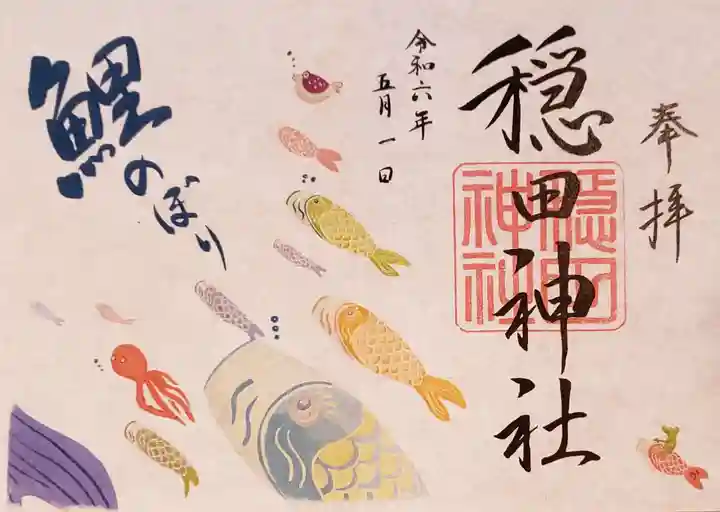 奉拝
穏田神社
穏田
神社
令和六年
五月一日
鯉のぼり